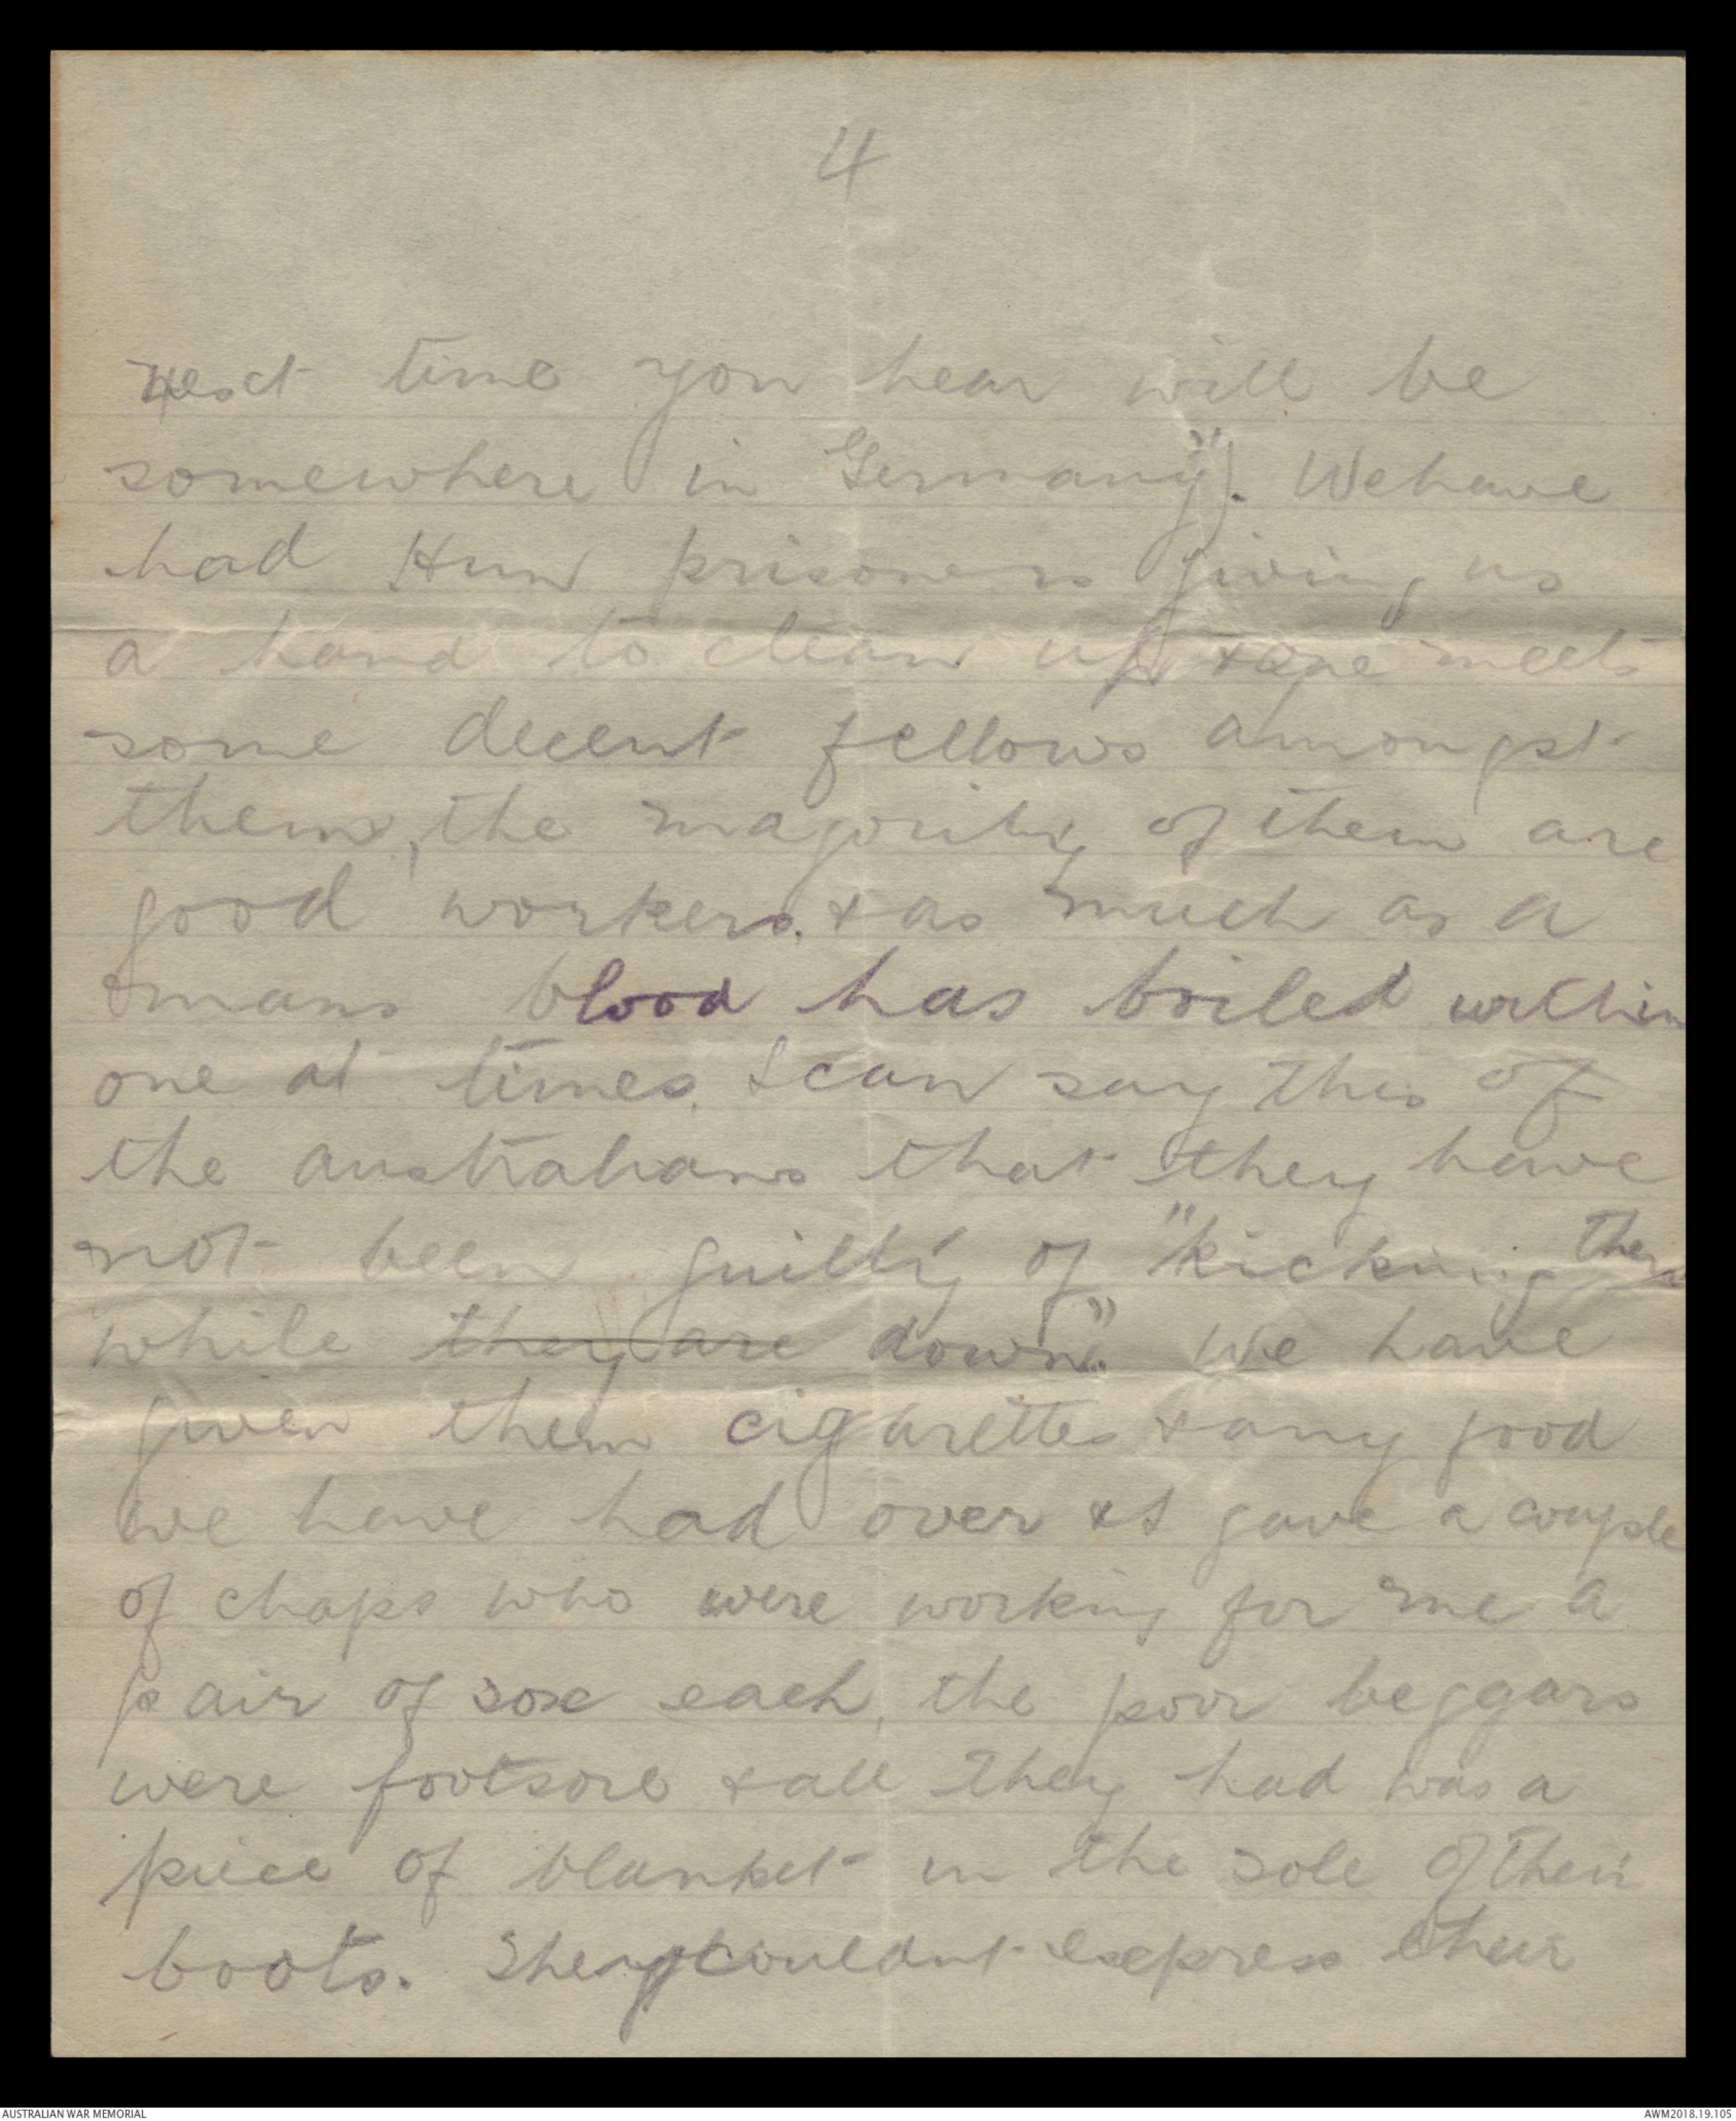 4
next time you hear will be
somewhere in Germany"). We have
had Hun prisoners giving us
a hand to clean up & one meets
some decent fellows amongst
them, the majority of them are
good workers. & as much as a
mans blood has boiled within
one at times. I can say this of
the australians that they have
not been guilty of "kicking them
while they are down". We have
given them cigarettes & any food
we have had over & I gave a couple
of chaps who were working for me a
pair of sox each, the poor beggars
were footsore & all they had was a
piece of blanket in the sole of their
boots. They couldnt express their
AUSTRALIAN WAR MEMORIAL
AWM2018.19.105